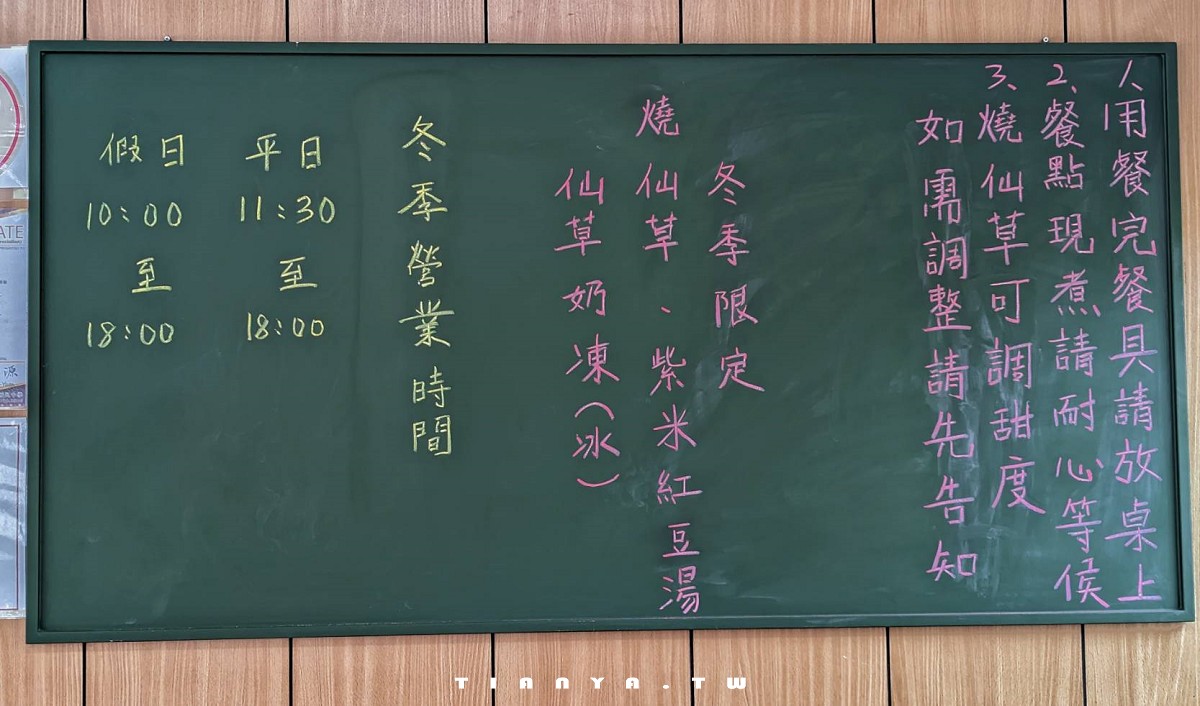 1、用餐完餐具請放桌上
2、餐點現煮請耐心等候
3、燒仙草可調甜度
如需調整請先告知
冬季限定
燒仙草、紫米紅豆湯
仙草奶凍(冰)
冬季營業時間
平日
11:30
至
18:00
假日
10:00
至
18:00
ATE
源
TIANYA.TW